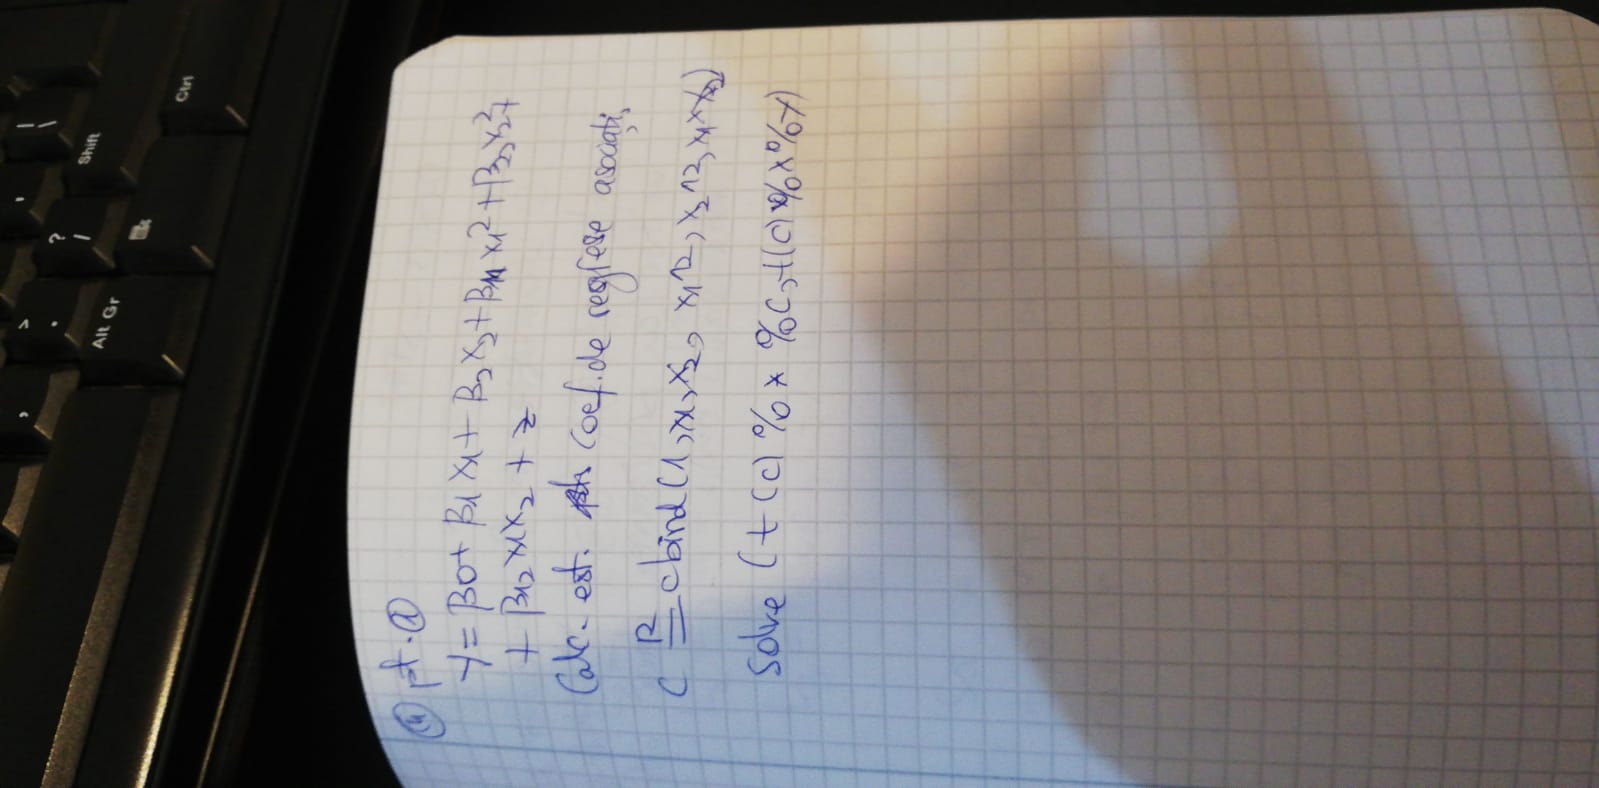 ,
>
.
?
/
|
\
Shift
Alt Gr
Ctrl
④ pt. ①
Y = β0 + β1 x1 + β2 x2 + β11 x1² + β22 x2² +
+ β12 x1 x2 + z
Calc. est. coef. de regrese asociați,
C R= cbind(1, x1, x2, x1^2, x2^2, x1*x2)
solve (t(c) %*%c, t(c) %*%Y)